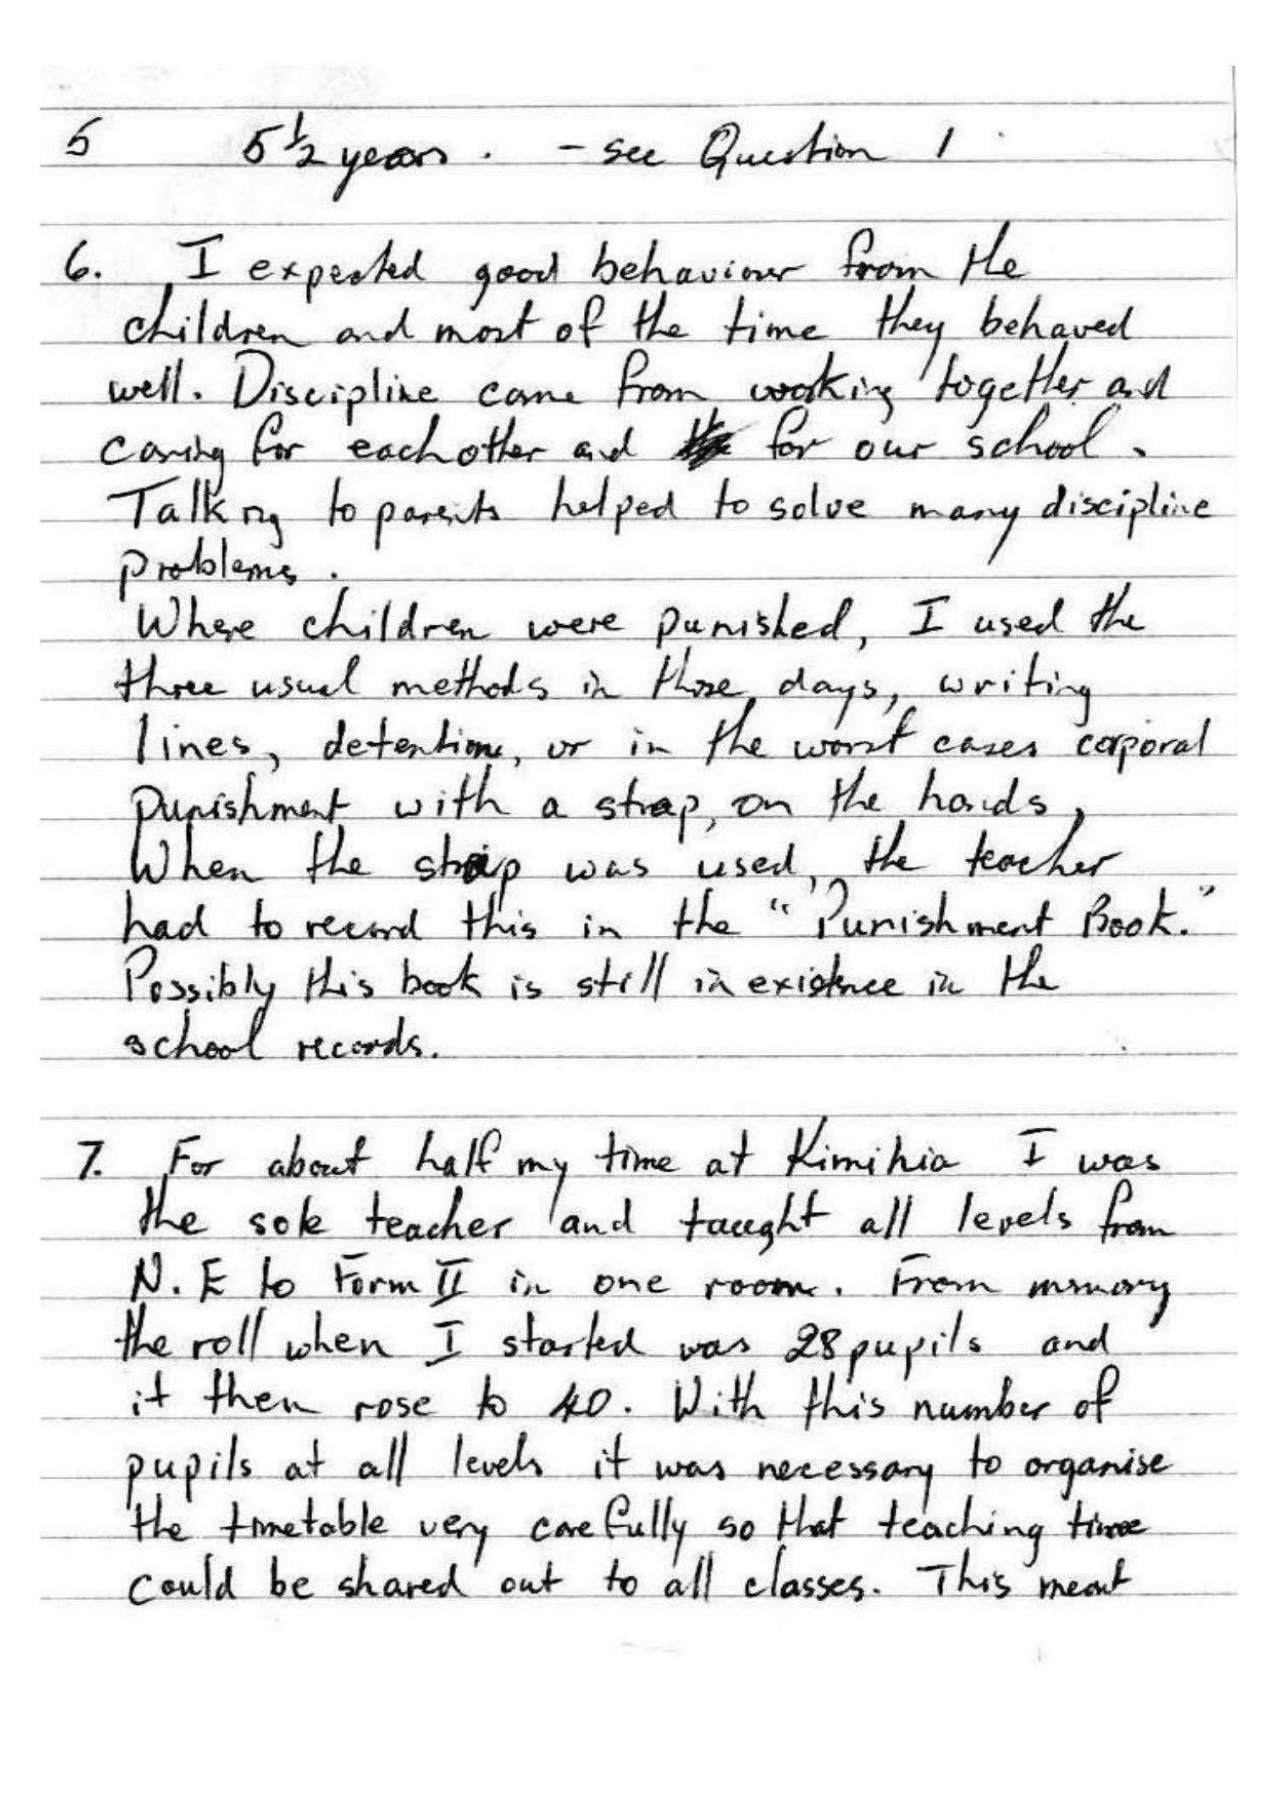 5 5½ years. - see Question 1
6. I expected good behaviour from the
children and most of the time they behaved
well. Discipline came from working together and
caring for eachother and for our school.
Talking to parents helped to solve many discipline
problems.
Where children were punished, I used the
three usual methods in those days, writing
lines, detention, or in the worst cases corporal
punishment with a strap, on the hands,
When the strap was used, the teacher
had to record this in the "Punishment Book."
Possibly this book is still in existence in the
school records.
7. For about half my time at Kimihia I was
the sole teacher and taught all levels from
N.E to Form II in one room. From memory
the roll when I started was 28 pupils and
it then rose to 40. With this number of
pupils at all levels it was necessary to organise
the timetable very carefully so that teaching time
could be shared out to all classes. This meant